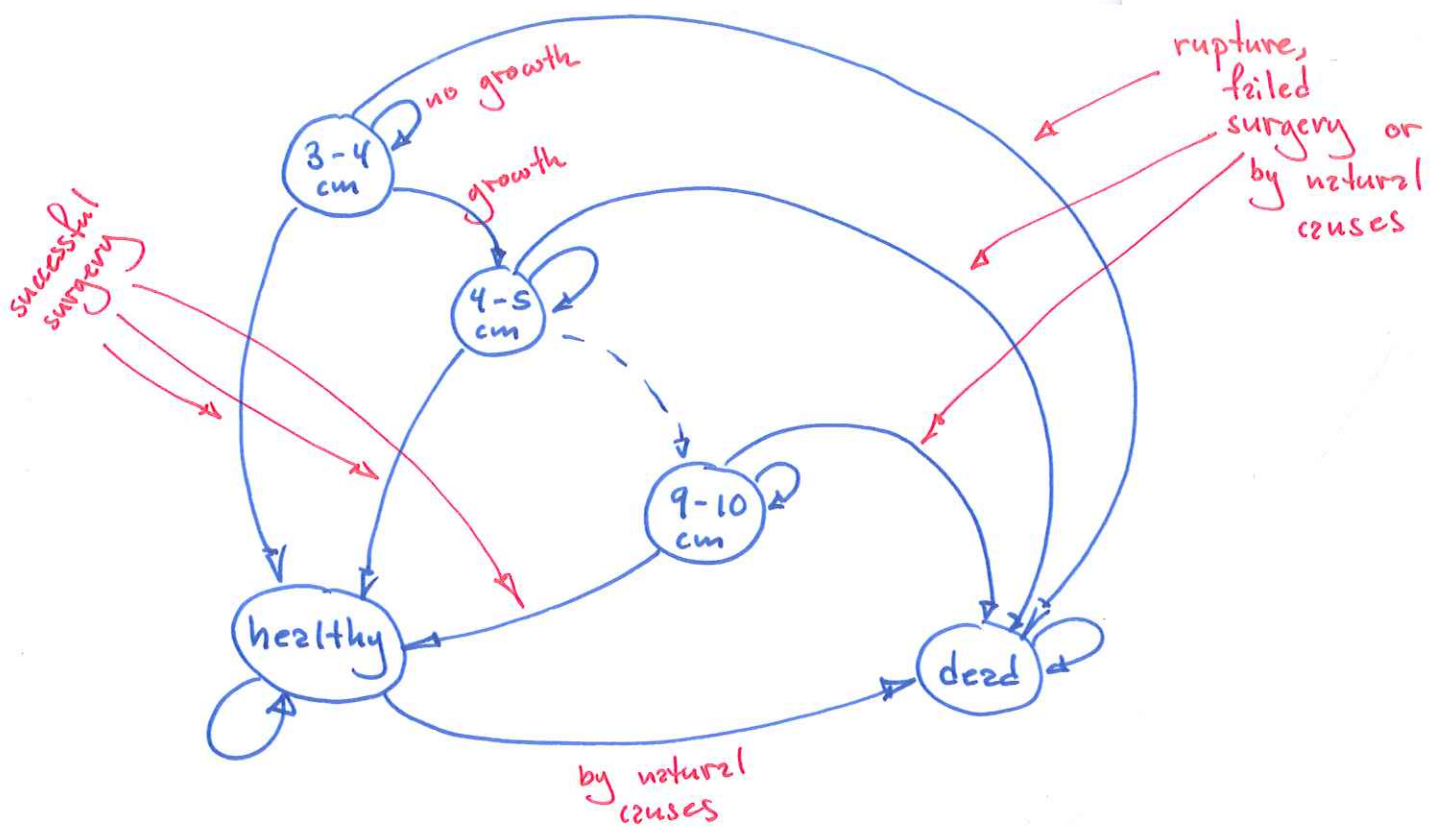 rupture,
failed
surgery or
by natural
causes
no growth
3-4
cm
growth
successful
surgery
4-5
cm
9-10
cm
healthy
dead
by natural
causes